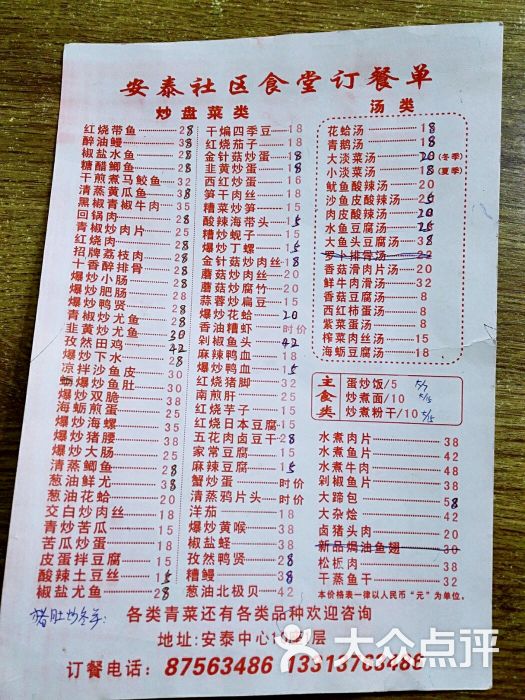 安泰社区食堂订餐单
炒盘菜类
红烧带鱼 28
醉油鳗 38
椒盐水鱼 28
糖醋鲫鱼 28
干煎煮马鲛鱼 32
清蒸黄瓜鱼 38
黑椒青椒牛肉 35
回锅肉 28
青椒炒肉片 25
红烧肉 28
招牌荔枝肉 28
十香醉排骨 28
爆炒小肠 28
爆炒肥肠 38
爆炒鸭贤 28
青椒炒尤鱼 28
韭黄炒尤鱼 30
孜然田鸡 42
爆炒下水 28
凉拌沙鱼皮 30
蛎爆炒鱼肚 30
爆炒双脆 38
海蛎煎蛋 20
爆炒海螺 35
爆炒猪腰 38
爆炒大肠 25
清蒸鲫鱼 28
葱油鲜尤 38
葱油花蛤 20
交白炒肉丝 18
青炒苦瓜 15
苦瓜炒蛋 18
皮蛋拌豆腐 15
酸辣土豆丝 15
椒盐尤鱼 28
干煸四季豆 18
红烧茄子 18
金针菇炒蛋 18
韭黄炒蛋 18
西红炒蛋 16
笋干肉丝 18
糟菜炒笋 15
酸辣海带头 15
糟炒蚬子 15
爆炒丁螺 15
金针菇炒肉丝 18
蘑菇炒肉丝 20
蘑菇炒腐竹 20
蒜蓉炒扁豆 15
爆炒花蛤 20
香油糟虾 时价
剁椒鱼头 42
麻辣鸭血 18
爆炒鸭血 15
红烧猪脚 32
南煎肝 25
红烧芋子 15
红烧日本豆腐 15
五花肉卤豆干 28
家常豆腐 15
麻辣豆腐 15
蟹炒蛋 时价
清蒸鸦片头 时价
洋茄 18
爆炒黄喉 38
椒盐蛏 38
孜然鸭贤 28
糟鳗 38
葱油北极贝 42
汤类
花蛤汤 18
青鹅汤 18
大淡菜汤 20(冬季)
小淡菜汤 18(夏季)
鱿鱼酸辣汤 20
沙鱼皮酸辣汤 25
肉皮酸辣汤 20
水鱼豆腐汤 25
大鱼头豆腐汤 38
罗卜排骨汤 22
香菇滑肉片汤 20
鲜牛肉滑汤 32
香菇豆腐汤 8
西红柿蛋汤 8
紫菜蛋汤 8
榨菜肉丝汤 18
海蛎豆腐汤 18
主食类
蛋炒饭/5
炒煮面/10 5/15
炒煮粉干/10 5/15
水煮肉片 38
水煮鱼片 42
水煮牛肉 48
剁椒鱼片 38
大蹄包 58
大杂烩 42
卤猪头肉 20
新品焗油鱼翅 30
松板肉 38
干蒸鱼干 32
本价格表一律以人民币“元”为单位。
猪肚炒冬笋:
各类青菜还有各类品种欢迎咨询
地址:安泰中心
订餐电话: 87563486 13313766486
大众点评